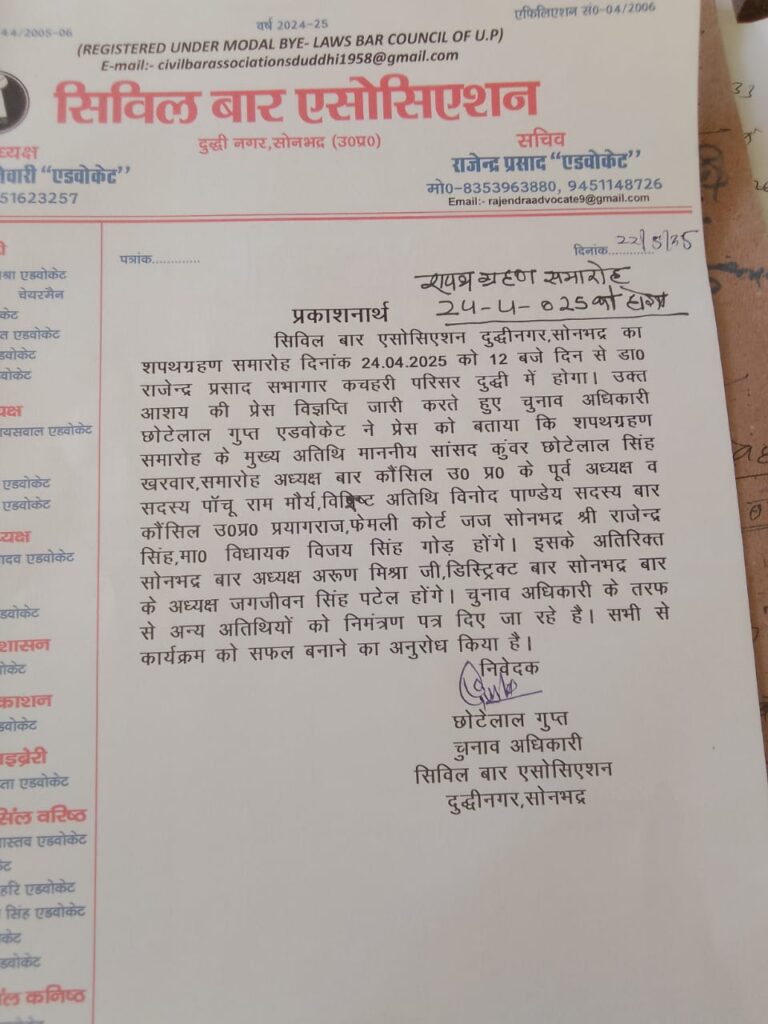 44/2005-06
वर्ष 2024-25
एफिलिएशन सं0-04/2006
(REGISTERED UNDER MODAL BYE- LAWS BAR COUNCIL OF U.P)
E-mail:- civilbarassociationsduddhi1958@gmail.com
सिविल बार एसोसिएशन
दुद्धी नगर,सोनभद्र (उ0प्र0)
ध्यक्ष
वारी "एडवोकेट"
51623257
सचिव
राजेन्द्र प्रसाद "एडवोकेट"
मो0-8353963880, 9451148726
Email:- rajendraadvocate9@gmail.com
पत्रांक.............
दिनांक.............
शपथ ग्रहण समारोह
24-4-025 को होगा
प्रकाशनार्थ
सिविल बार एसोसिएशन दुद्धीनगर,सोनभद्र का
शपथग्रहण समारोह दिनांक 24.04.2025 को 12 बजे दिन से डा0
राजेन्द्र प्रसाद सभागार कचहरी परिसर दुद्धी में होगा। उक्त
आशय की प्रेस विज्ञप्ति जारी करते हुए चुनाव अधिकारी
छोटेलाल गुप्त एडवोकेट ने प्रेस को बताया कि शपथग्रहण
समारोह के मुख्य अतिथि माननीय सांसद कुंवर छोटेलाल सिंह
खरवार,समारोह अध्यक्ष बार कौंसिल उ0 प्र0 के पूर्व अध्यक्ष व
सदस्य पाँचू राम मौर्य,विशिष्ट अतिथि विनोद पाण्डेय सदस्य बार
कौंसिल उ0प्र0 प्रयागराज,फेमली कोर्ट जज सोनभद्र श्री राजेन्द्र
सिंह,मा0 विधायक विजय सिंह गोड़ होंगे। इसके अतिरिक्त
सोनभद्र बार अध्यक्ष अरूण मिश्रा जी,डिस्ट्रिक्ट बार सोनभद्र बार
के अध्यक्ष जगजीवन सिंह पटेल होंगे। चुनाव अधिकारी के तरफ
से अन्य अतिथियों को निमंत्रण पत्र दिए जा रहे है। सभी से
कार्यक्रम को सफल बनाने का अनुरोध किया है।
निवेदक
छोटेलाल गुप्त
चुनाव अधिकारी
सिविल बार एसोसिएशन
दुद्धीनगर,सोनभद्र
श्रा एडवोकेट
चेयरमैन
केट
त एडवोकेट
डवोकेट
वोकेट
यक्ष
ायसवाल एडवोकेट
एडवोकेट
एडवोकेट
यक्ष
ादव एडवोकेट
डवोकेट
शासन
ोकेट
काशन
डवोकेट
इब्रेरी
ता एडवोकेट
र्सिल वरिष्ठ
ास्तव एडवोकेट
ेट
हरि एडवोकेट
सिंह एडवोकेट
केट
डवोकेट
र्सिल कनिष्ठ